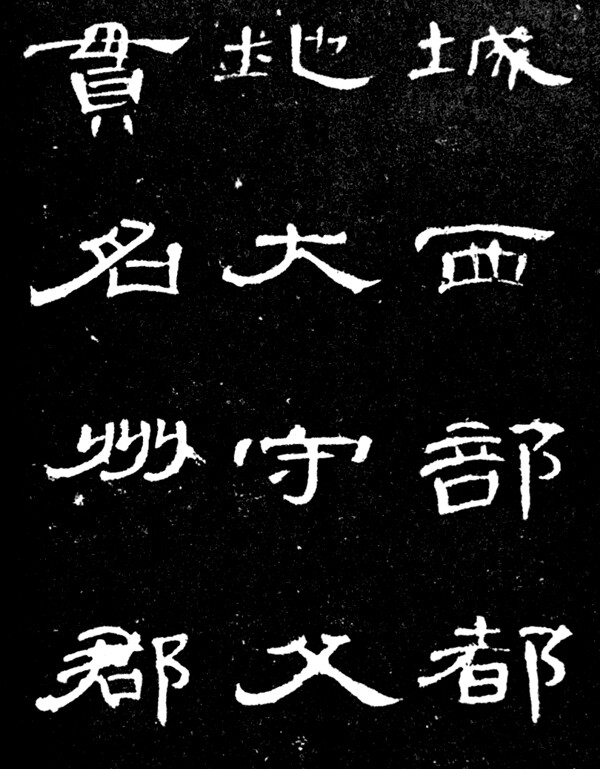 城西部都
地大守父
貫名州郡